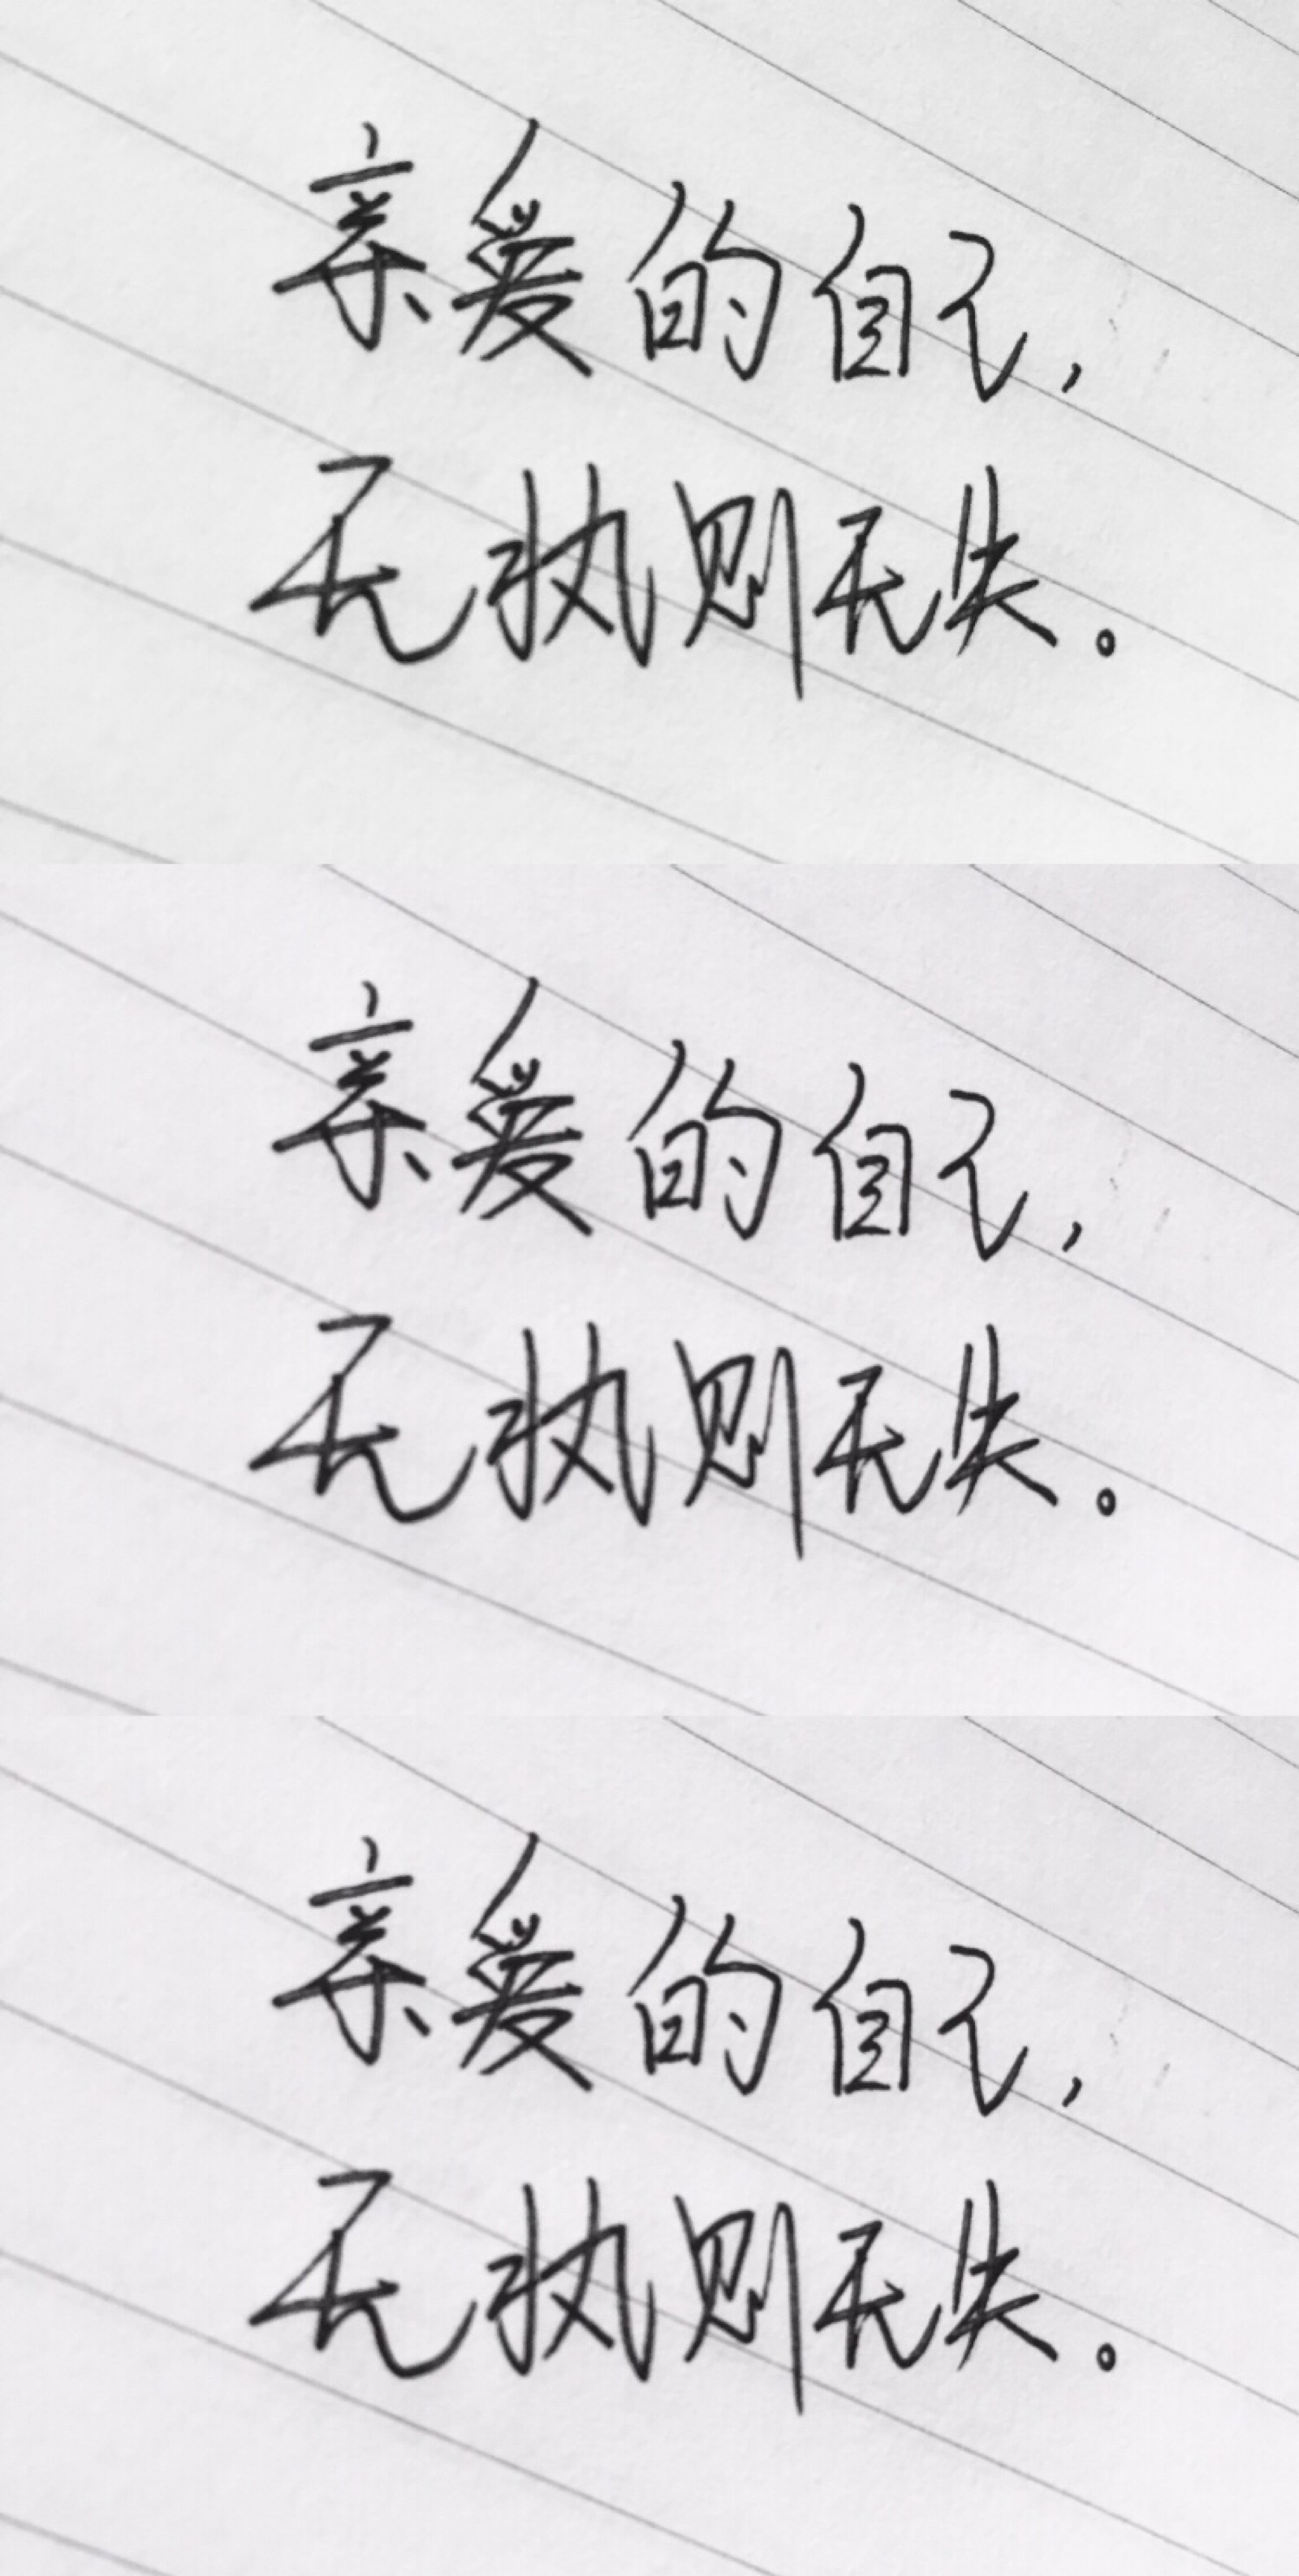 亲爱的自己,
无执则无失。
亲爱的自己,
无执则无失。
亲爱的自己,
无执则无失。